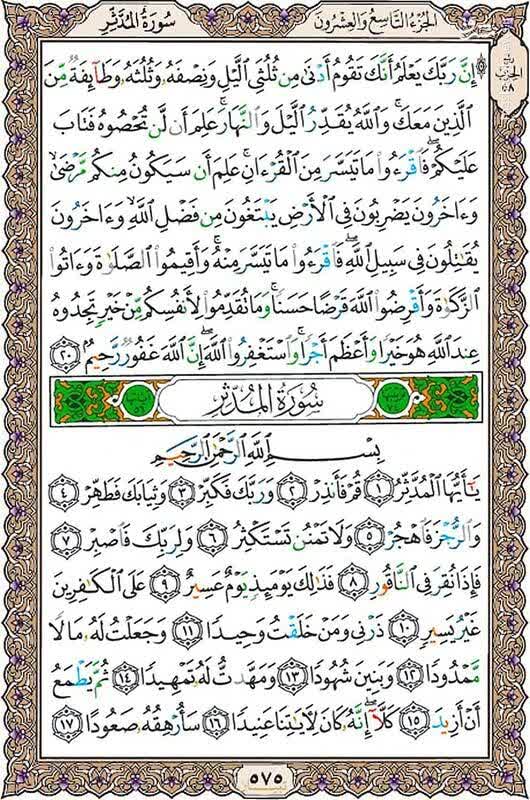 الجزء التاسع والعشرون سورة المدثر
ربع الحزب ٥٨
۞ إِنَّ رَبَّكَ يَعْلَمُ أَنَّكَ تَقُومُ أَدْنَىٰ مِن ثُلُثَىِ ٱلَّيْلِ وَنِصْفَهُۥ وَثُلُثَهُۥ وَطَآئِفَةٌ مِّنَ
ٱلَّذِينَ مَعَكَ ۚ وَٱللَّهُ يُقَدِّرُ ٱلَّيْلَ وَٱلنَّهَارَ ۚ عَلِمَ أَن لَّن تُحْصُوهُ فَتَابَ
عَلَيْكُمْ ۖ فَٱقْرَءُوا۟ مَا تَيَسَّرَ مِنَ ٱلْقُرْءَانِ ۚ عَلِمَ أَن سَيَكُونُ مِنكُم مَّرْضَىٰ ۙ
وَءَاخَرُونَ يَضْرِبُونَ فِى ٱلْأَرْضِ يَبْتَغُونَ مِن فَضْلِ ٱللَّهِ ۙ وَءَاخَرُونَ
يُقَٰتِلُونَ فِى سَبِيلِ ٱللَّهِ ۖ فَٱقْرَءُوا۟ مَا تَيَسَّرَ مِنْهُ ۚ وَأَقِيمُوا۟ ٱلصَّلَوٰةَ وَءَاتُوا۟
ٱلزَّكَوٰةَ وَأَقْرِضُوا۟ ٱللَّهَ قَرْضًا حَسَنًا ۚ وَمَا تُقَدِّمُوا۟ لِأَنفُسِكُم مِّنْ خَيْرٍ تَجِدُوهُ
عِندَ ٱللَّهِ هُوَ خَيْرًا وَأَعْظَمَ أَجْرًا ۚ وَٱسْتَغْفِرُوا۟ ٱللَّهَ ۖ إِنَّ ٱللَّهَ غَفُورٌ رَّحِيمٌۢ ٢٠
سُورَةُ المُدَّثِّر
بِسْمِ ٱللَّهِ ٱلرَّحْمَٰنِ ٱلرَّحِيمِ
يَٰٓأَيُّهَا ٱلْمُدَّثِّرُ ١ قُمْ فَأَنذِرْ ٢ وَرَبَّكَ فَكَبِّرْ ٣ وَثِيَابَكَ فَطَهِّرْ ٤
وَٱلرُّجْزَ فَٱهْجُرْ ٥ وَلَا تَمْنُن تَسْتَكْثِرُ ٦ وَلِرَبِّكَ فَٱصْبِرْ ٧
فَإِذَا نُقِرَ فِى ٱلنَّاقُورِ ٨ فَذَٰلِكَ يَوْمَئِذٍ يَوْمٌ عَسِيرٌ ٩ عَلَى ٱلْكَٰفِرِينَ
غَيْرُ يَسِيرٍ ١٠ ذَرْنِى وَمَنْ خَلَقْتُ وَحِيدًا ١١ وَجَعَلْتُ لَهُۥ مَالًا
مَّمْدُودًا ١٢ وَبَنِينَ شُهُودًا ١٣ وَمَهَّدتُّ لَهُۥ تَمْهِيدًا ١٤ ثُمَّ يَطْمَعُ
أَنْ أَزِيدَ ١٥ كَلَّآ ۖ إِنَّهُۥ كَانَ لِءَايَٰتِنَا عَنِيدًا ١٦ سَأُرْهِقُهُۥ صَعُودًا ١٧
٥٧٥